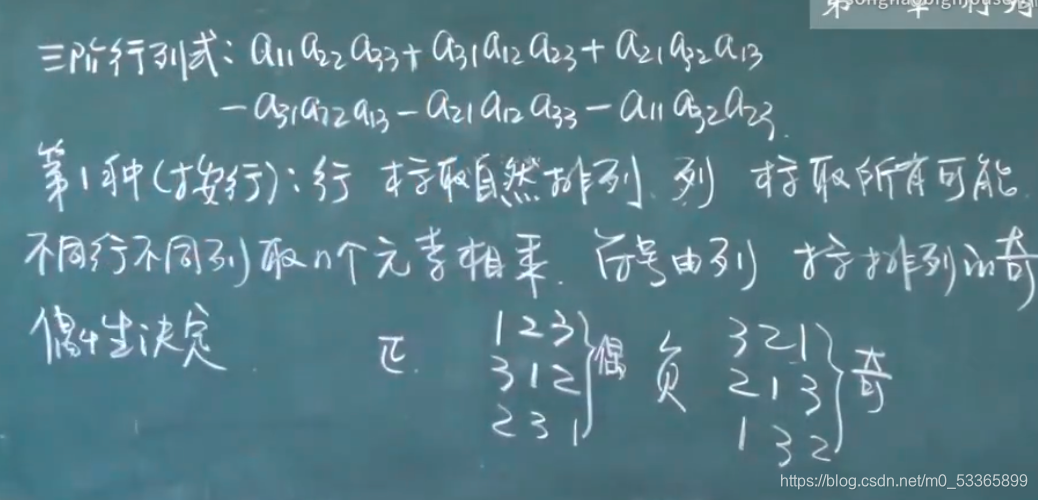 三阶行列式: a11a22a33+a31a12a23+a21a32a13
-a31a22a13-a21a12a33-a11a32a23.
第1种(按行): 行 标取自然排列. 列 标取所有可能.
不同行不同列取n个元素相乘. 符号由列 标排列的奇
偶性决定.
正. 1 2 3 3 1 2 2 3 1 }偶 负 3 2 1 2 1 3 1 3 2 }奇
https://blog.csdn.net/m0_53365899